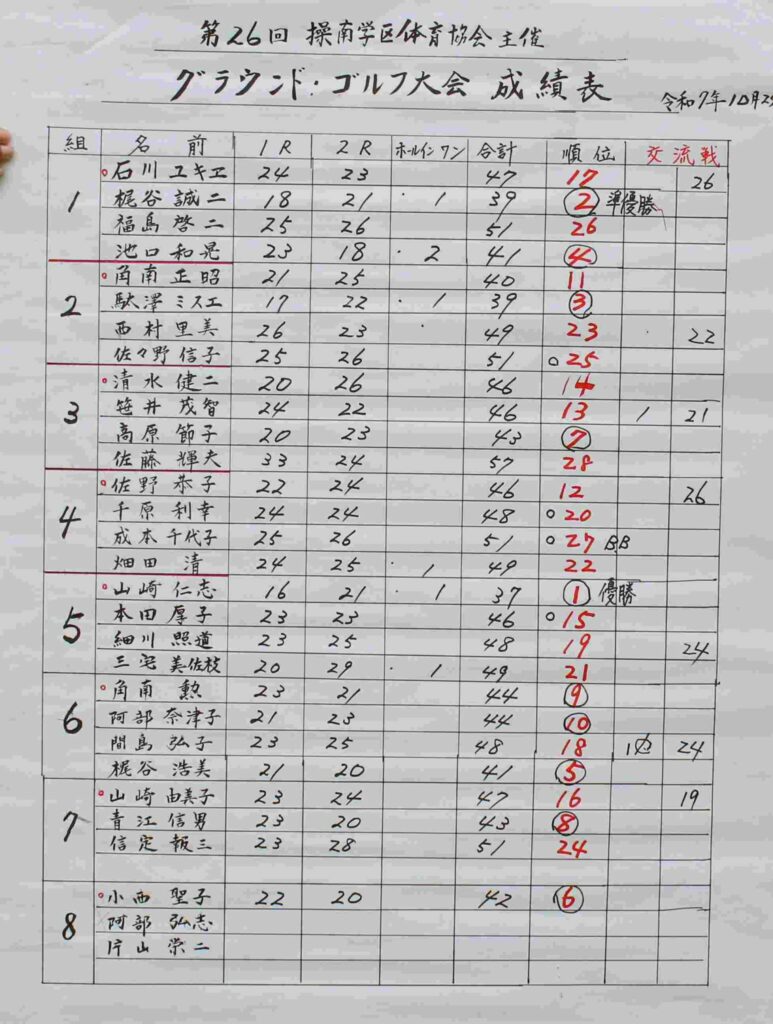 第26回 操南学区体育協会 主催
グラウンド・ゴルフ大会 成績表
令和7年10月25
組 名前 1R 2R ホールインワン 合計 順位 交流戦
1 石川 ユキエ 24 23 47 17 26
梶谷 誠二 18 21 1 39 2 準優勝
福島 啓二 25 26 51 26
池口 和晃 23 18 2 41 4
2 角南 正昭 21 25 40 11
駄澤 ミスエ 17 22 1 39 3
西村 里美 26 23 49 23 22
佐々野 信子 25 26 51 25
3 清水 健二 20 26 46 14
笹井 茂智 24 22 46 13 1 21
高原 節子 20 23 43 7
佐藤 輝夫 33 24 57 28
4 佐野 恭子 22 24 46 12 26
千原 利幸 24 24 48 20
成本 千代子 25 26 51 27 B.B
畑田 清 24 25 1 49 22
5 山崎 仁志 16 21 1 37 1 優勝
本田 厚子 23 23 46 15
細川 照道 23 25 48 19 24
三宅 美佐枝 20 29 1 49 21
6 角南 勲 23 21 44 9
阿部 奈津子 21 23 44 10
間島 弘子 23 25 48 18 24
梶谷 浩美 21 20 41 5
7 山崎 由美子 23 24 47 16 19
青江 信男 23 20 43 8
信定 報三 23 28 51 24
8 小西 聖子 22 20 42 6
阿部 弘志
片山 栄二